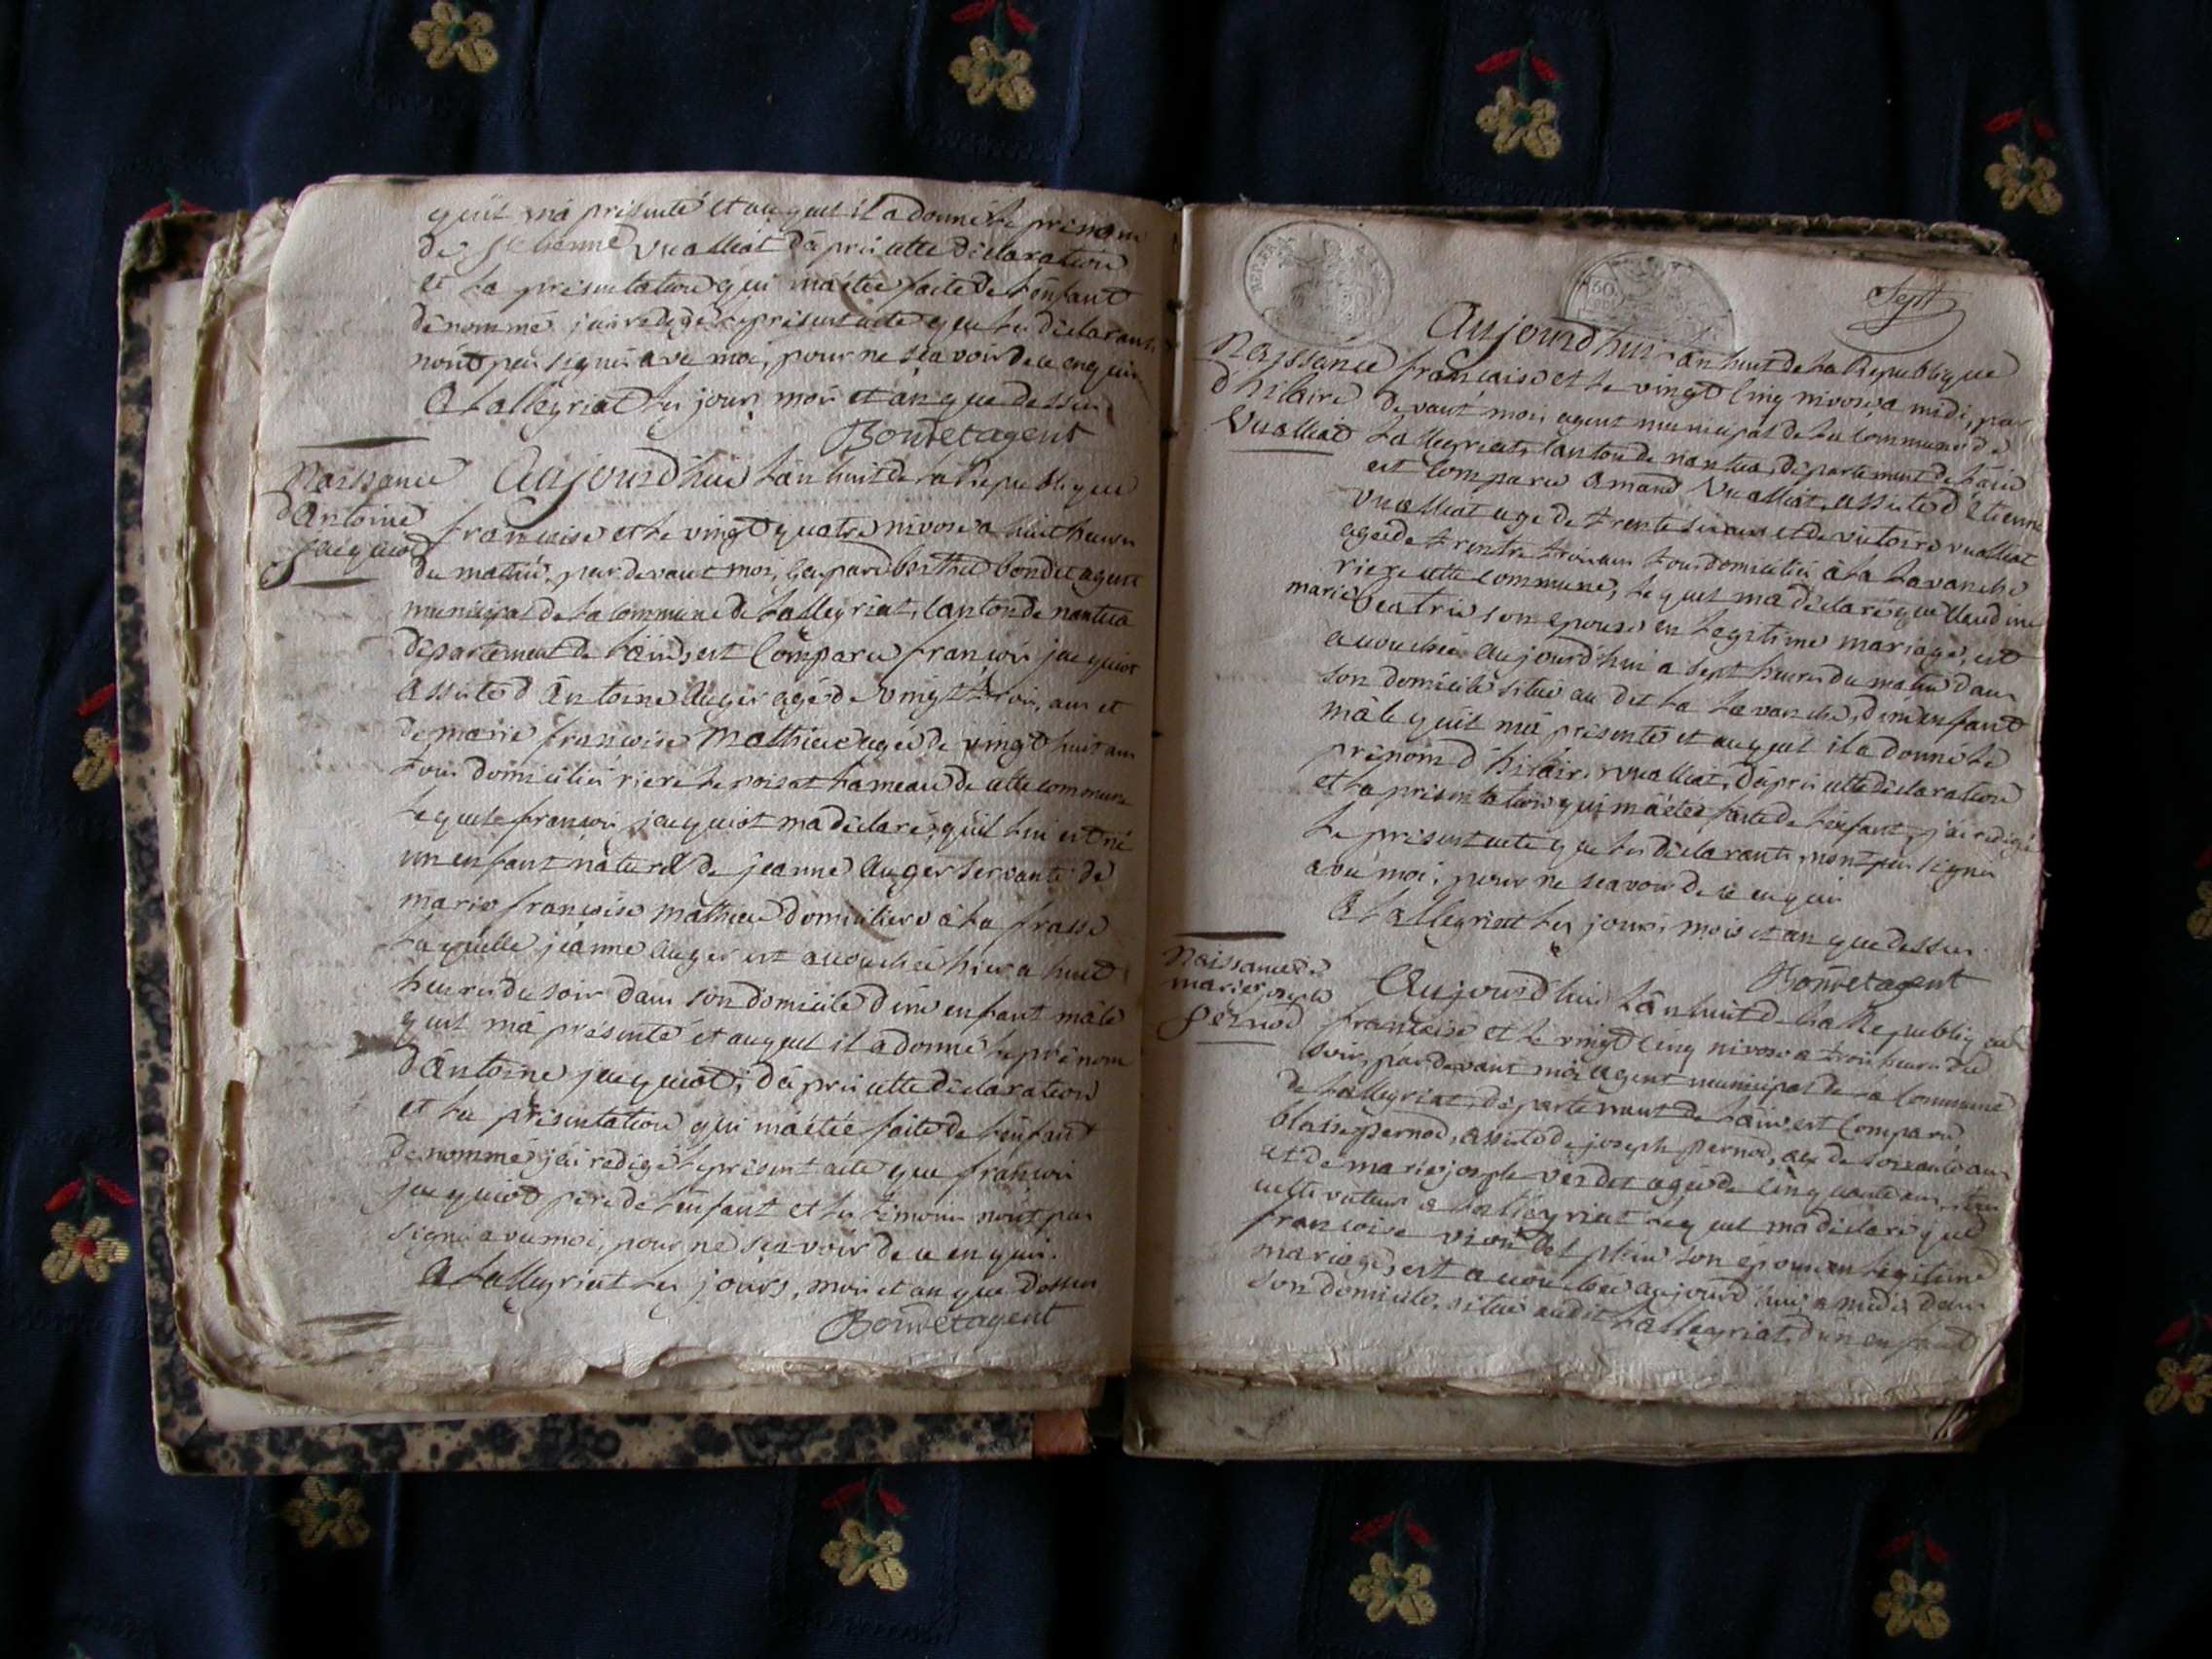 quil má presenté et auquel il a donné le prenom
de Etienne Vualliat d'apris cette declaration
et la presentation qui má étée faite de l'enfant
denommé jai redigé le present acte que les declarants
nont pas signé avec moi, pour ne scavoir de ce enquis
A Lalleyriat les jours mois et an que dessus
Bondet agent
Naissance
d'Antoine
jacquiot
Aujourd'hui l'an huit de la Republique
francaise et le vingt quatre nivose a huit heures
du matin, par devant moi, gaspard berthet bondet agent
municipal de la commune de Lalleyriat, canton de nantua
departement de l'ain, est Comparu françois jacquiot
assisté d'Antoine Auger agé de vingt trois ans et
de marie françoise Mathieu agée de vingt huit ans
tous domiciliés riere le poisat hameau de cette commune
lequel françois jacquiot ma declaré, quil lui est né
un enfant naturel de jeanne Auger servante de
marie francoise mathieu domiciliée á la frasse
laquelle jeanne Auger est accouchée hier a huit
heures du soir dans son domicile d'un enfant mále
quil má présenté et auquel il a donné le prenom
d'Antoine jacquiot, d'apris cette declaration
et la presentation qui má étée faite de l'enfant
denommé, jái redigé le present acte que francois
jacquiot pere de l'enfant et les temoins nont pas
signé avec moi, pour ne scavoir de ce enquis.
A Lalleyriat les jours, mois et an que dessus
Bondet agent
Sept
Naissance
d'hilaire
Vualliat
Aujourd'hui l'an huit de la Republique
francaise et le vingt cinq nivose a midi, par
devant moi, agent municipal de la commune de
Lalleyriat, canton de nantua, departement de l'ain
est Comparu Amand Vualliat, assisté d'Etienne
Vualliat agé de trente six ans et de victoire vualliat
agée de trente trois ans tous domiciliés á la Lavanche
riere cette commune, lequel ma declaré que Claudine
marie beatrix son epouse en legitime mariage, est
accouchée Aujourd'hui a sept heures du matin dans
son domicile situé au dit La Lavanche, d'un enfant
mále quil má presenté et auquel il a donné le
prenom d'hilaire vualliat, d'apris cette declaration
et la presentation qui má étée faite de l'enfant, j'ai redigé
le present acte que les declarants nont pas signé
avec moi, pour ne scavoir de ce enquis
A Lalleyriat les jours, mois et an que dessus
Bondet agent
Naissance de
marie joseph
pernod
Aujourd'hui l'an huit de la Republique
francaise et le vingt cinq nivose a trois heures du
soir, par devant moi agent municipal de la Commune
de Lalleyriat, departement de l'ain, est Comparu
blaise pernod, assisté de joseph pernod, agé de soixante ans
et de marie joseph verdet agée de cinquante ans, tous
cultivateurs a Lalleyriat lequel ma declaré que
francoise son épouse en legitime
mariage, est accouchée aujourd'hui a midi dans
son domicile, situé audit Lalleyriat, d'un enfant